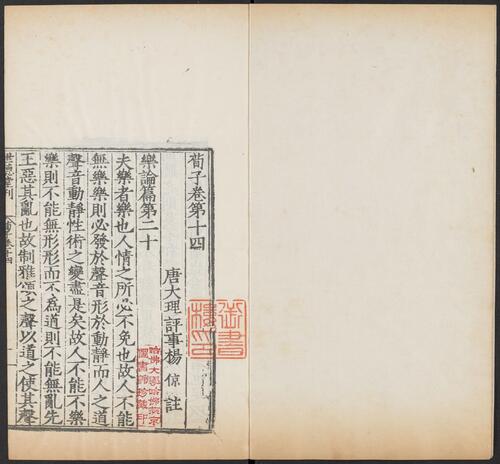 荀子卷第十四
唐大理評事楊 倞 註
樂論篇第二十
夫樂者樂也人情之所必不免也故人不能
無樂樂則必發於聲音形於動靜而人之道
聲音動靜性術之變盡是矣故人不能不樂
樂則不能無形形而不為道則不能無亂先
王惡其亂也故制雅頌之聲以道之使其聲
世德堂刊
荀子卷十四
哈佛大學哈佛燕京
圖書館珍藏印
御書
樓印